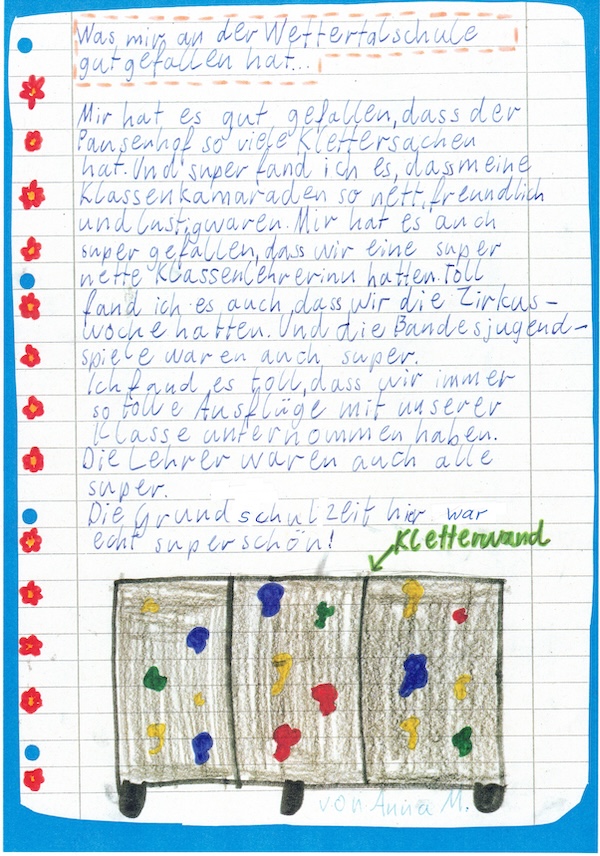 Was mir an der Wettertalschule
gut gefallen hat...
Mir hat es gut gefallen, dass der
Pausenhof so viele Klettersachen
hat. Und super fand ich es, dass meine
Klassenkamaraden so nett, freundlich
und lustig waren. Mir hat es auch
super gefallen, dass wir eine super
nette Klassenlehrerinn hatten. Toll
fand ich es auch, dass wir die Zirkus-
woche hatten. Und die Bandesjugend-
spiele waren auch super.
Ich fand es toll, dass wir immer
so tolle Ausflüge mit unserer
Klasse unternommen haben.
Die Lehrer waren auch alle
super.
Die Grundschulzeit hier war
echt superschön!
Kletterwand
von Anna M.